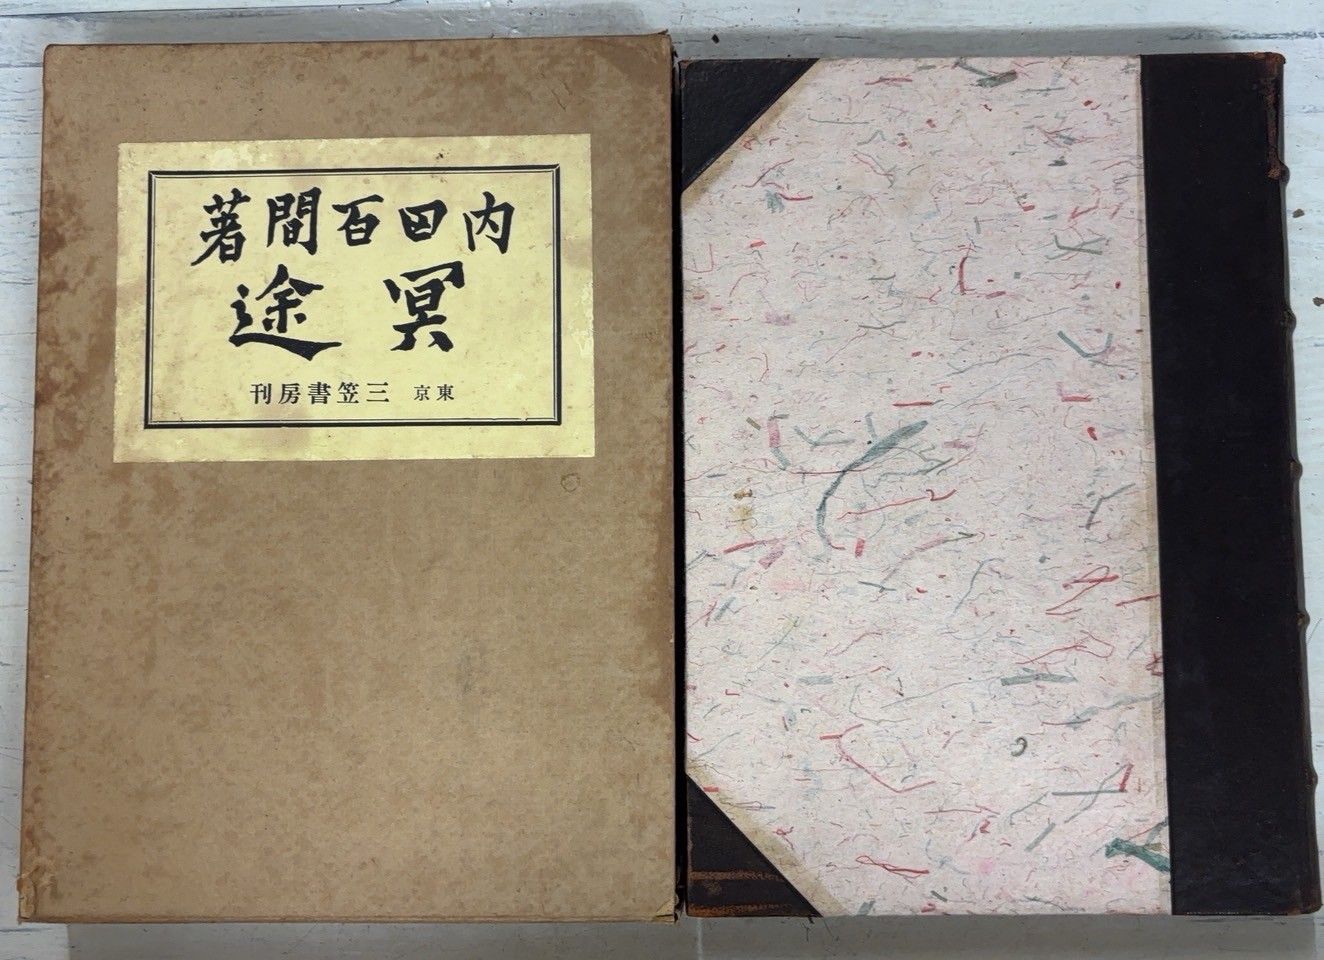 内田百間著
冥途
東京 三笠書房刊